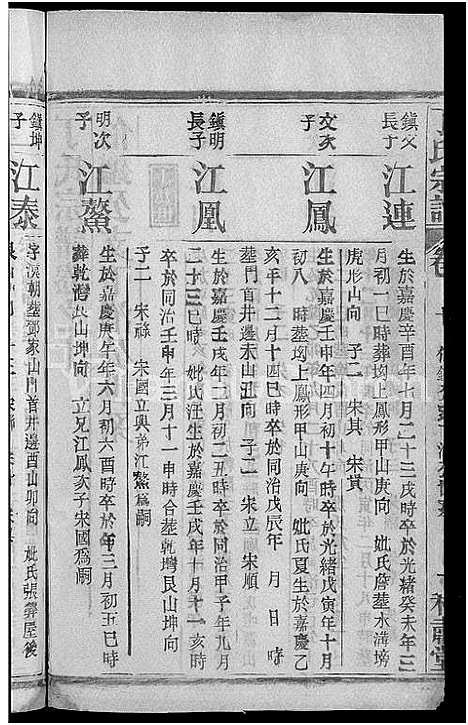 氏宗譜
鎮文長子
江連
生於嘉慶辛酉年七月二十三戌時卒於光緒癸未年三
月初一巳時葬坳上鳳形甲山庚向 妣氏詹塟水溝塝
虎形山向 子二 宋其 宋貴
文次子
江鳳
生於嘉慶壬申年四月初十午時卒於光緒戊寅年十月
初八 時塟坳上鳳形甲山庚向 妣氏夏生於嘉慶乙
亥年十二月十四巳時卒於同治戊辰年 月 日 時
塟門首井邊未山丑向 子二 宋立 宋順
鎮明長子
江凰
生於嘉慶壬戌年二月初二丑時卒於同治甲子年九月
二十三巳時 妣氏汪生於嘉慶壬戌年十月十一亥時
卒於同治壬申年三月十一申時合塟乾灣艮山坤向
子二 宋祿 宋國立與弟江鰲爲嗣
明次子
江鰲
生於嘉慶庚午年六月初六酉時卒於 年三月初五巳時
葬乾灣艮山坤向 立兄江鳳次子宋國爲嗣
鎮坤子
江泰
字漠朝塟鄧家山門首井邊酉山卯向 妣氏張葬屋後